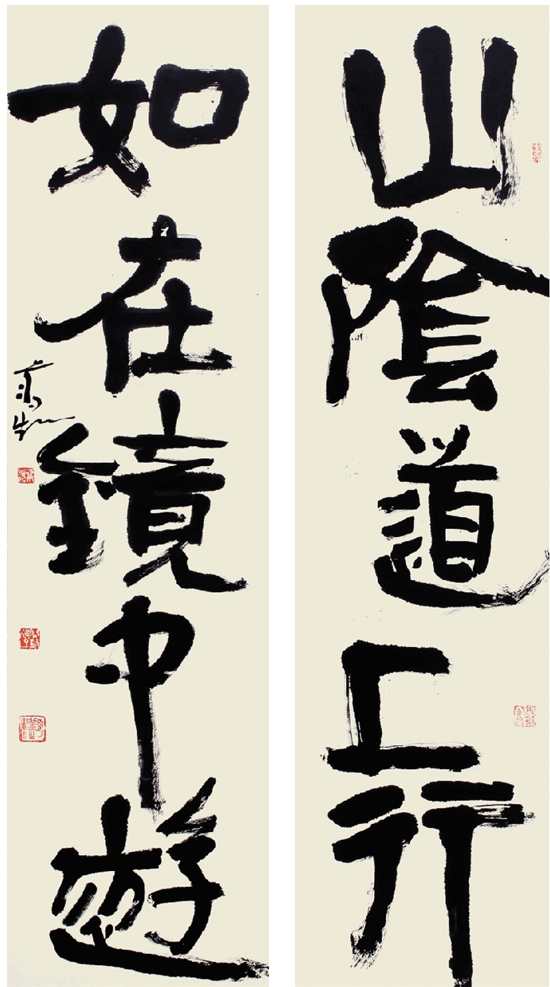 山陰道上行
如在鏡中遊